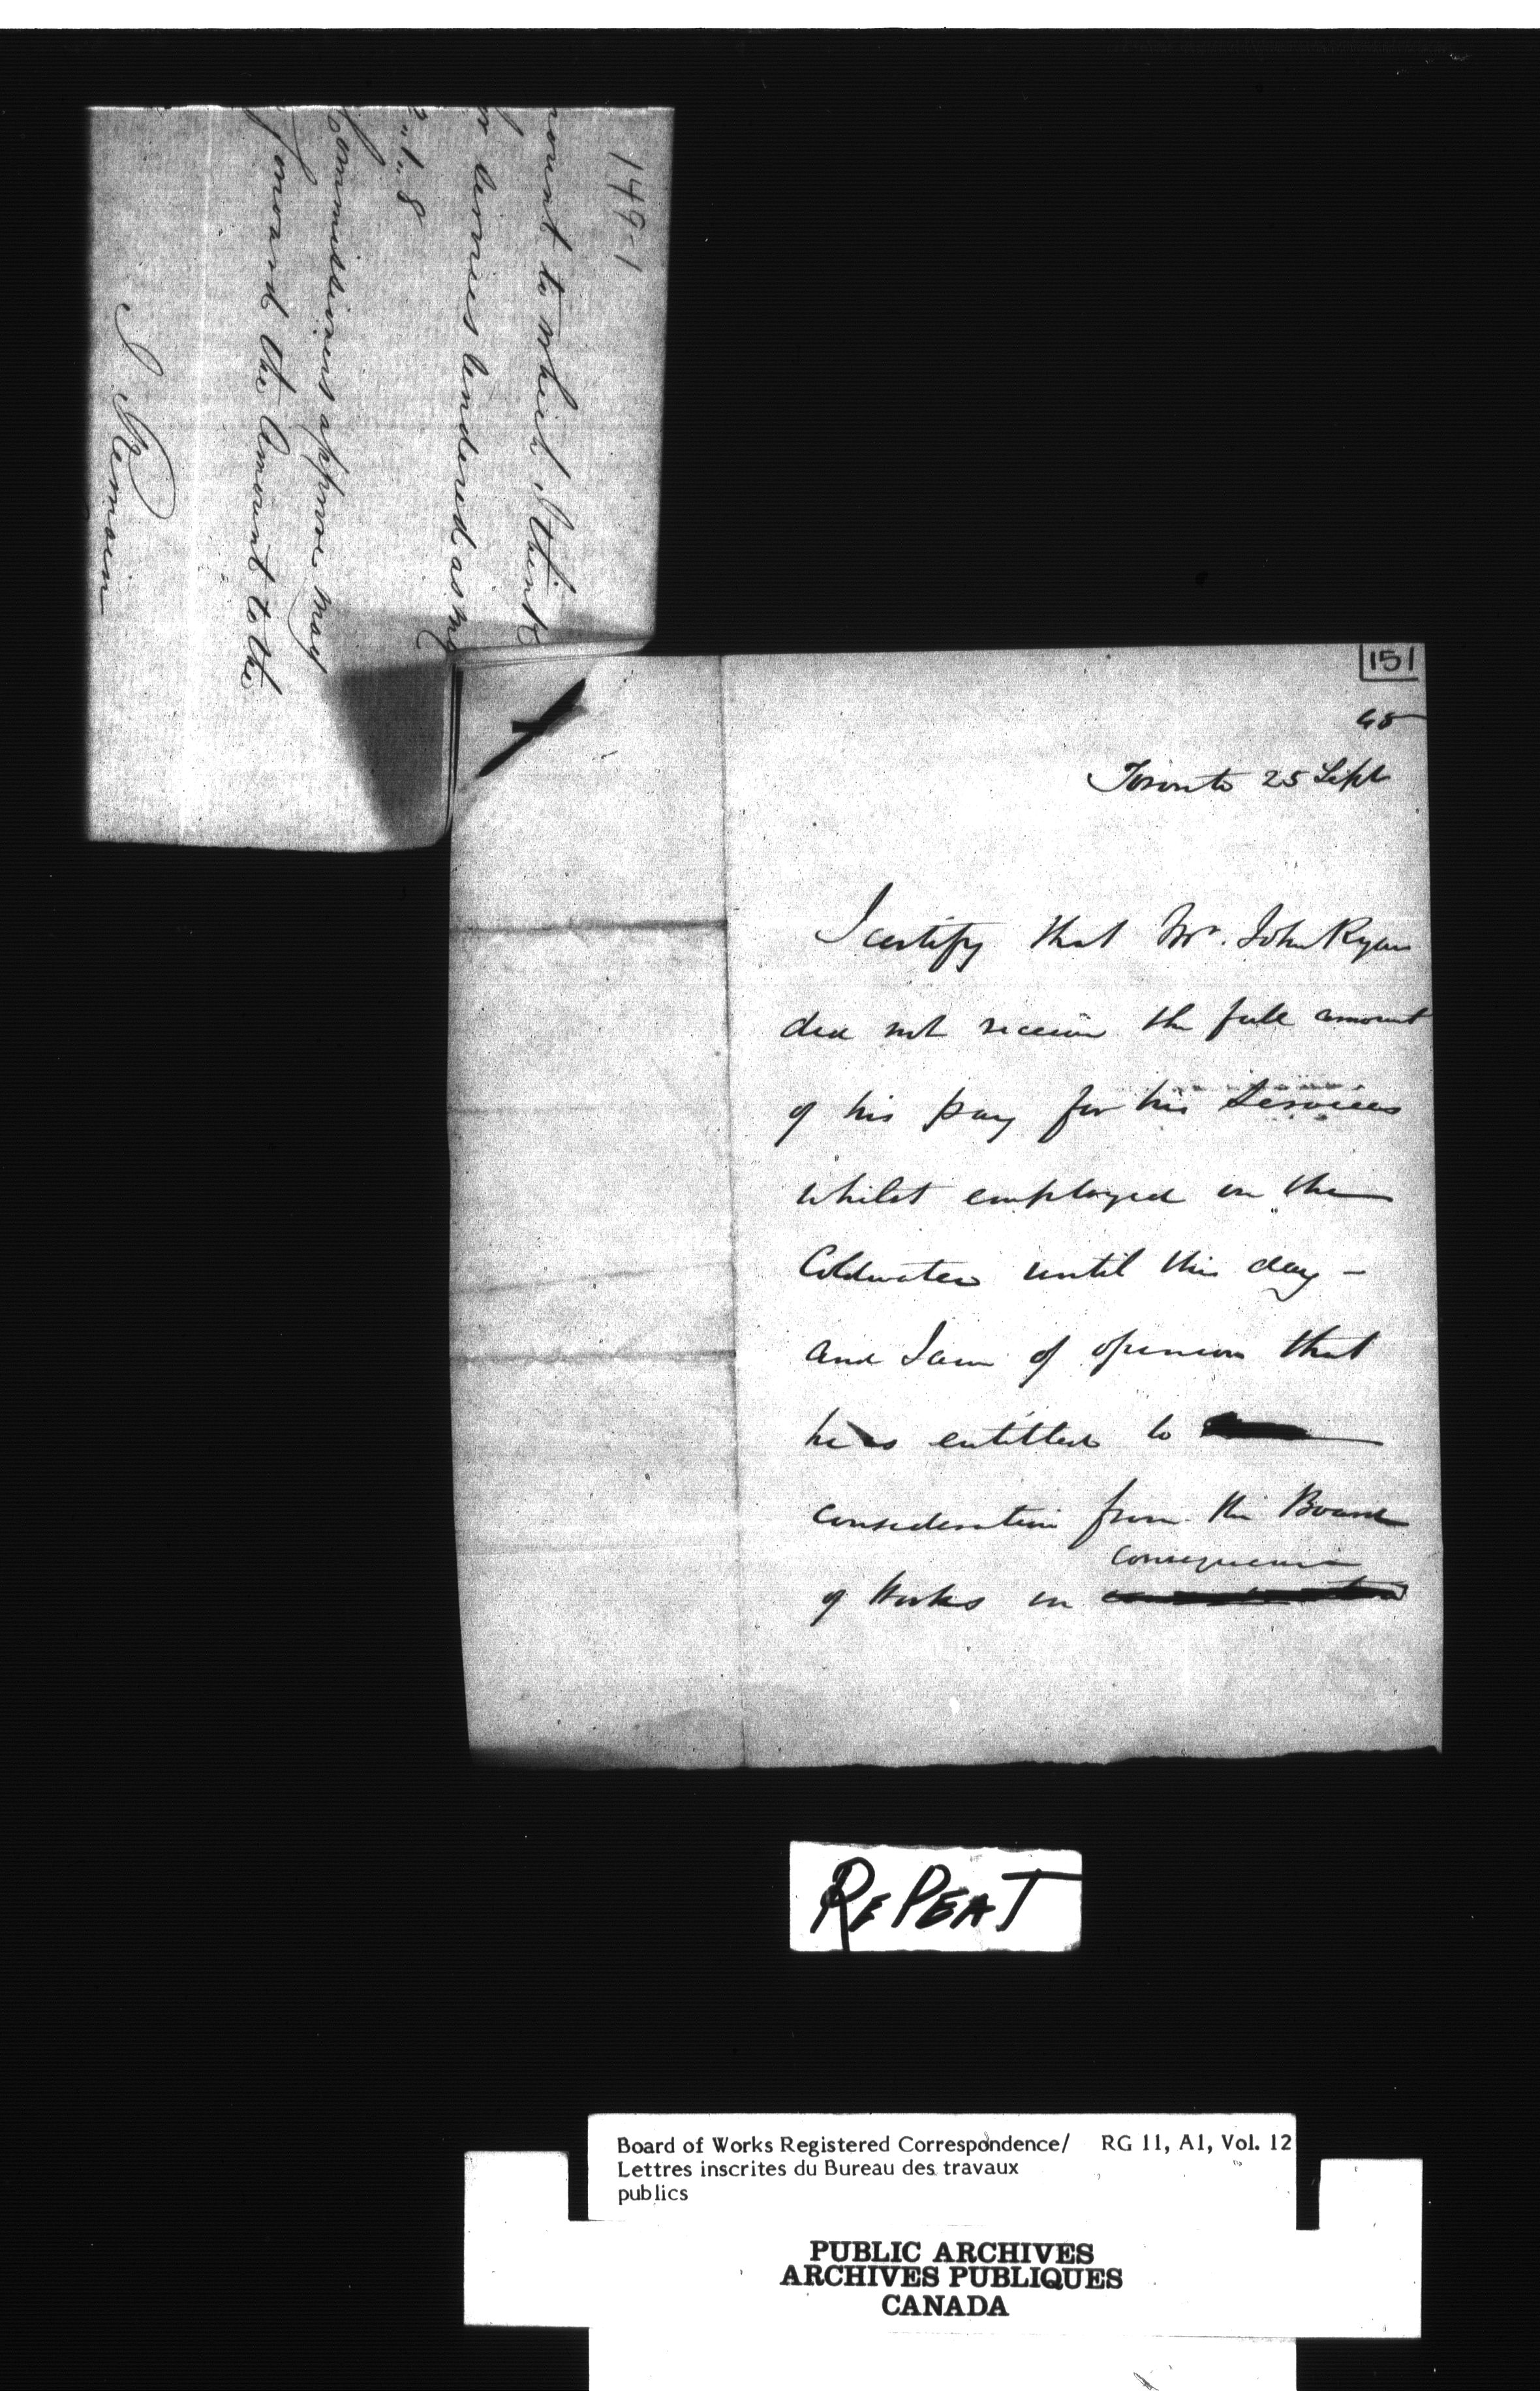 149-1
ount to which I think
r services rendered as my
2..1..8
Commissioners approve may
forward the Amount to the
I Remain
151
45
Toronto 25 Sept
I certify that Mr. John Ryan
did not receive the full amount
of his pay for his Services
whilst employed on the
Coldwater until this day –
and I am of opinion that
he is entitled to
consideration from the Board
consequence
of Works in
REPEAT
Board of Works Registered Correspondence/ RG 11, A1, Vol. 12
Lettres inscrites du Bureau des travaux
publics
PUBLIC ARCHIVES
ARCHIVES PUBLIQUES
CANADA